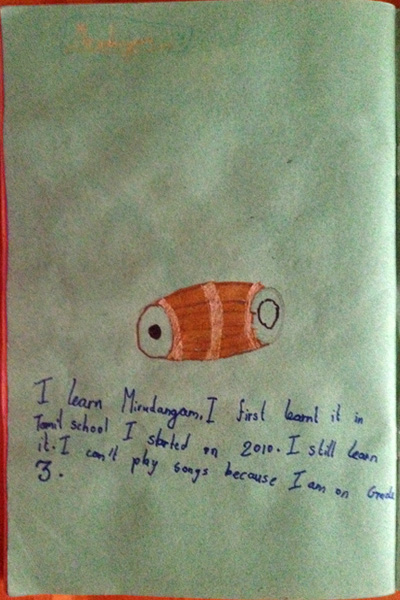 I learn Mirudangam. I first learnt it in
Tamil school I started on 2010. I still learn
it. I can't play songs because I am on Grade
3.